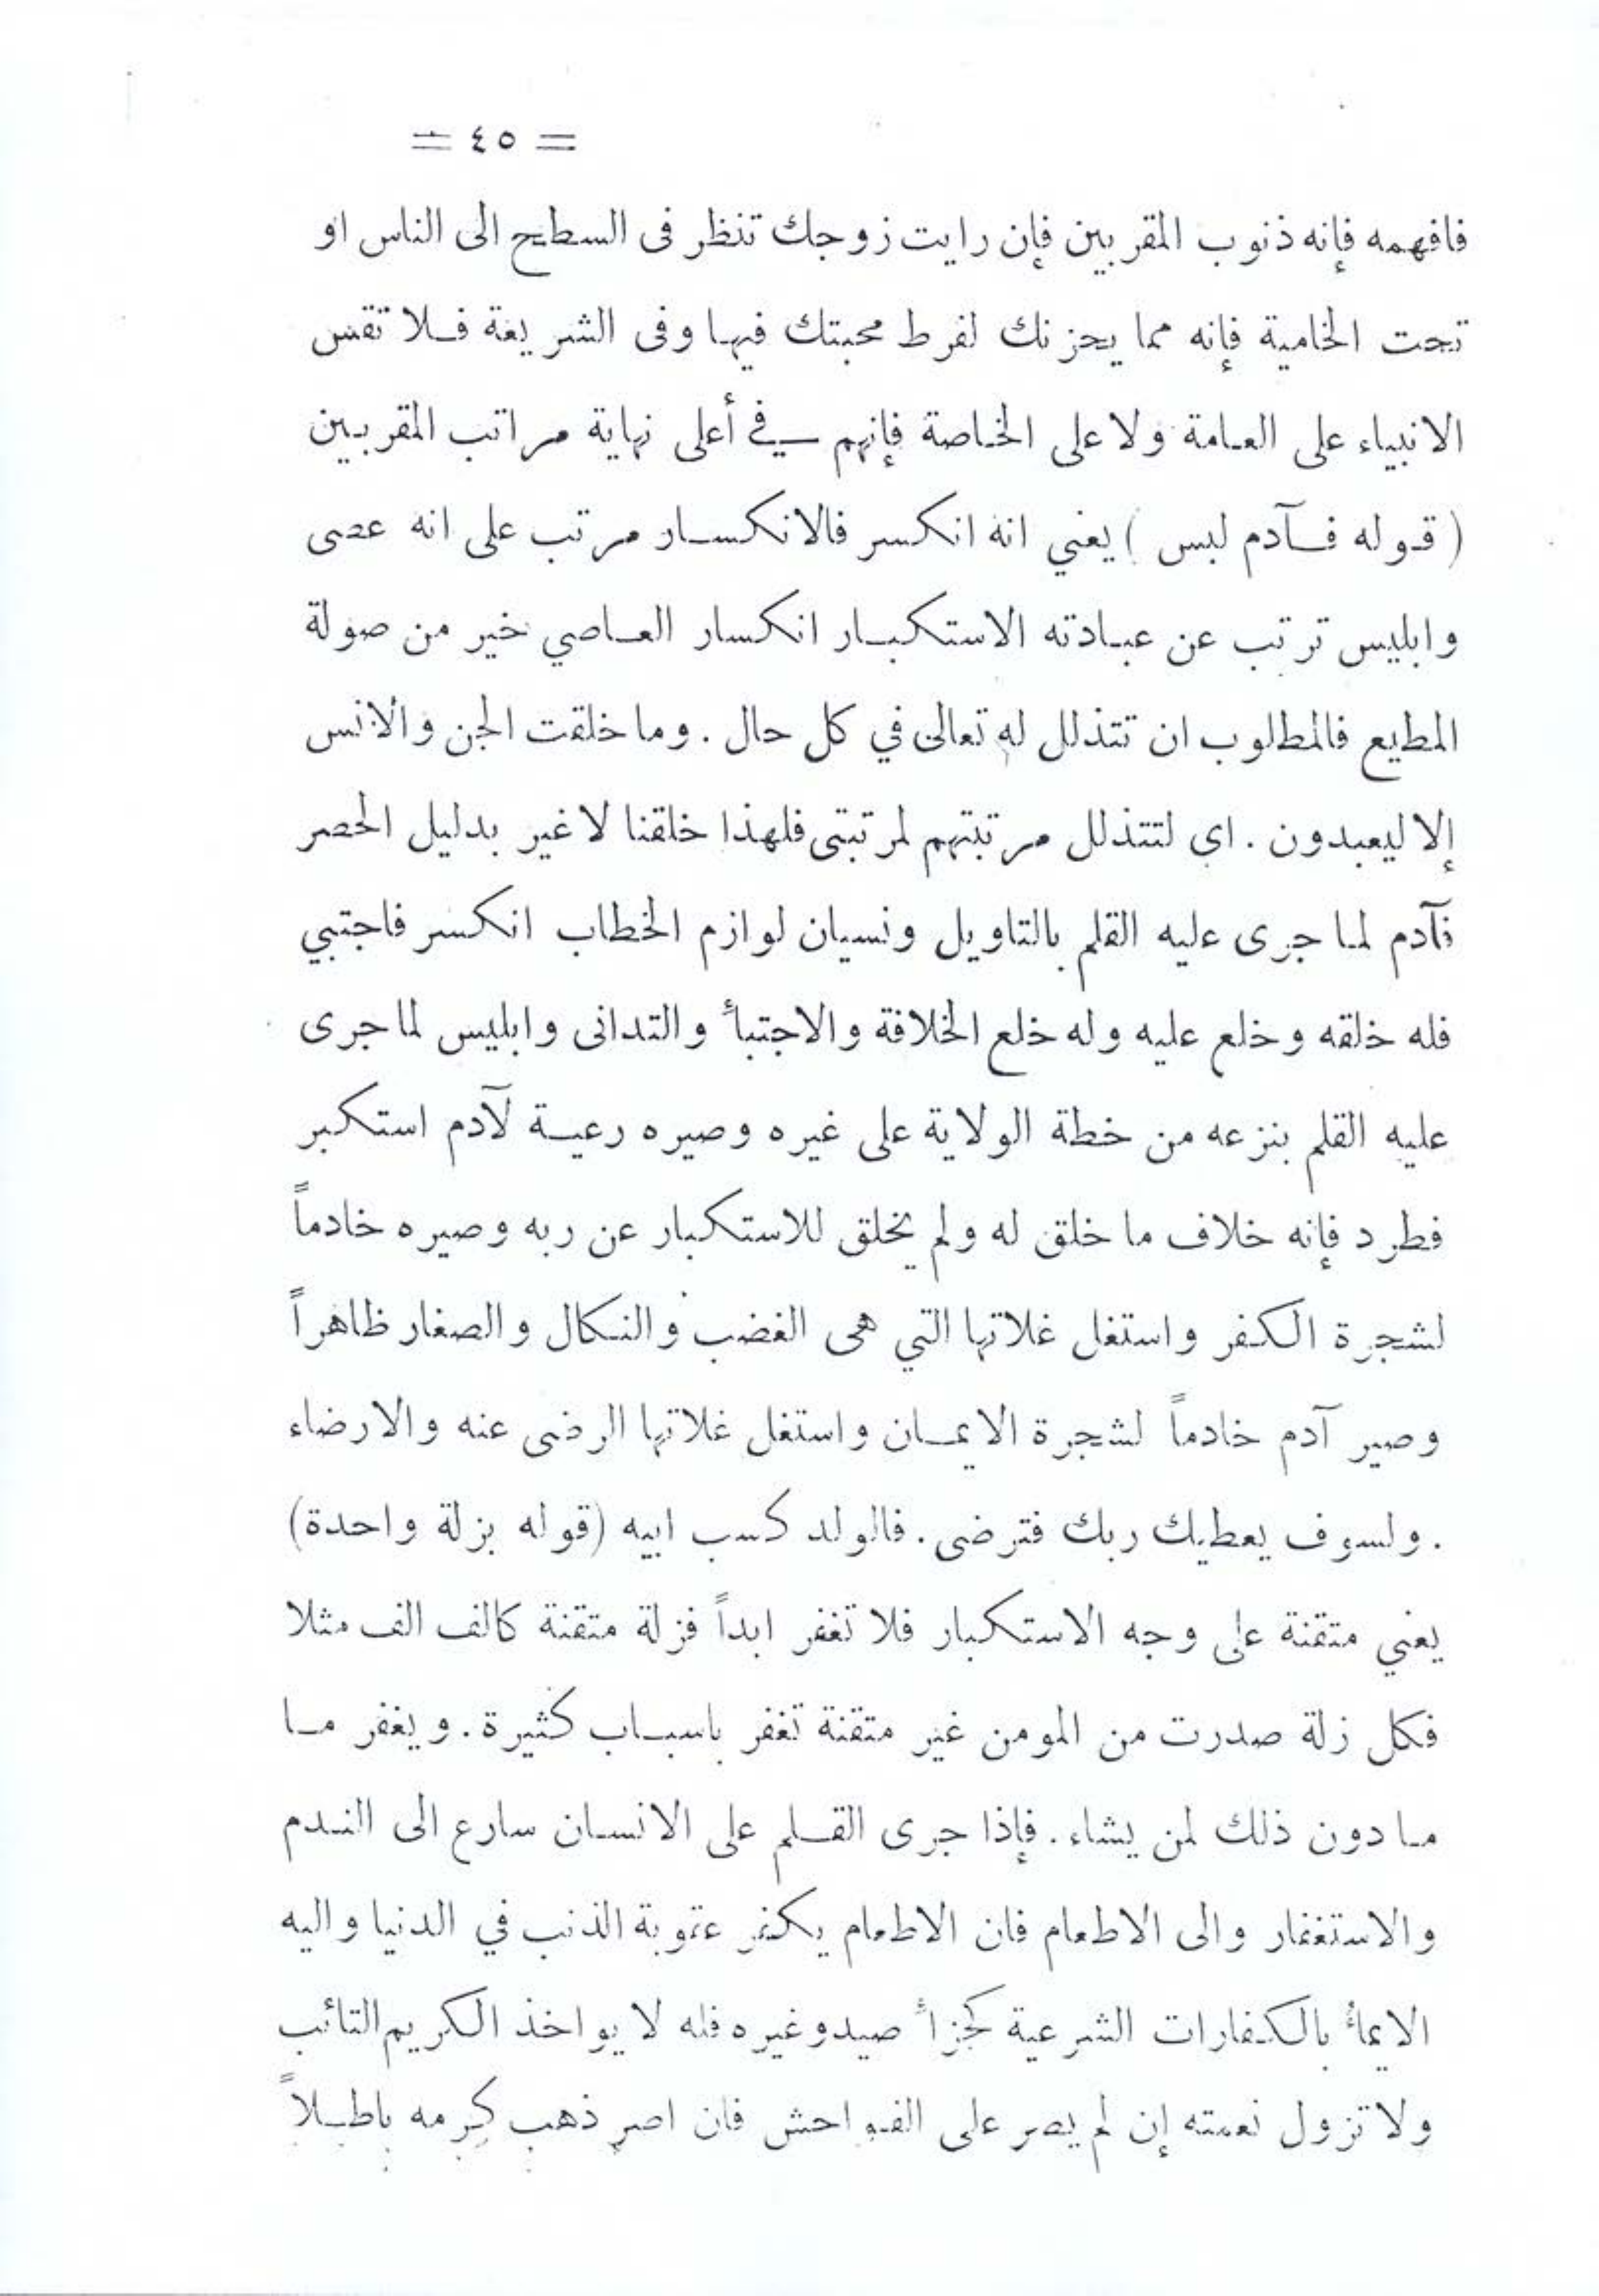 = ٤٥ =
فافهمه فإنه ذنوب المقربين فإن رايت زوجك تنظر فى السطح الى الناس او
تحت الخامية فإنه مما يحزنك لفرط محبتك فيها وفى الشريعة فلا تقس
الانبياء على العامة ولا على الخاصة فإنهم في أعلى نهاية مراتب المقربين
( قوله فآدم لبس ) يعني انه انكسر فالانكسار مرتب على انه عصى
وابليس ترتب عن عبادته الاستكبار انكسار العاصي خير من صولة
المطيع فالمطلوب ان تتذلل له تعالى في كل حال . وما خلقت الجن والانس
إلا ليعبدون . اى لتتذلل مرتبتهم لمرتبتى فلهذا خلقنا لا غير بدليل الحصر
فآدم لما جرى عليه القلم بالتاويل ونسيان لوازم الخطاب انكسر فاجتبي
فله خلقه وخلع عليه وله خلع الخلافة والاجتبأ والتدانى وابليس لما جرى
عليه القلم بنزعه من خطة الولاية على غيره وصيره رعية لآدم استكبر
فطرد فإنه خلاف ما خلق له ولم يخلق للاستكبار عن ربه وصيره خادماً
لشجرة الكفر واستغل غلاتها التي هى الغضب والنكال والصغار ظاهراً
وصير آدم خادماً لشجرة الايمان واستغل غلاتها الرضى عنه والارضاء
. ولسوف يعطيك ربك فترضى . فالولد كسب ابيه (قوله بزلة واحدة)
يعني متقنة على وجه الاستكبار فلا تغفر ابداً فزلة متقنة كالف الف مثلا
فكل زلة صدرت من المومن غير متقنة تغفر باسباب كثيرة . ويغفر ما
ما دون ذلك لمن يشاء . فإذا جرى القلم على الانسان سارع الى الندم
والاستغفار والى الاطعام فان الاطعام يكفر عقوبة الذنب في الدنيا واليه
الايمأ بالكفارات الشرعية كجزأ صيد وغيره فله لا يواخذ الكريم التائب
ولا تزول نعمته إن لم يصر على الفواحش فان اصر ذهب كرمه باطلاً